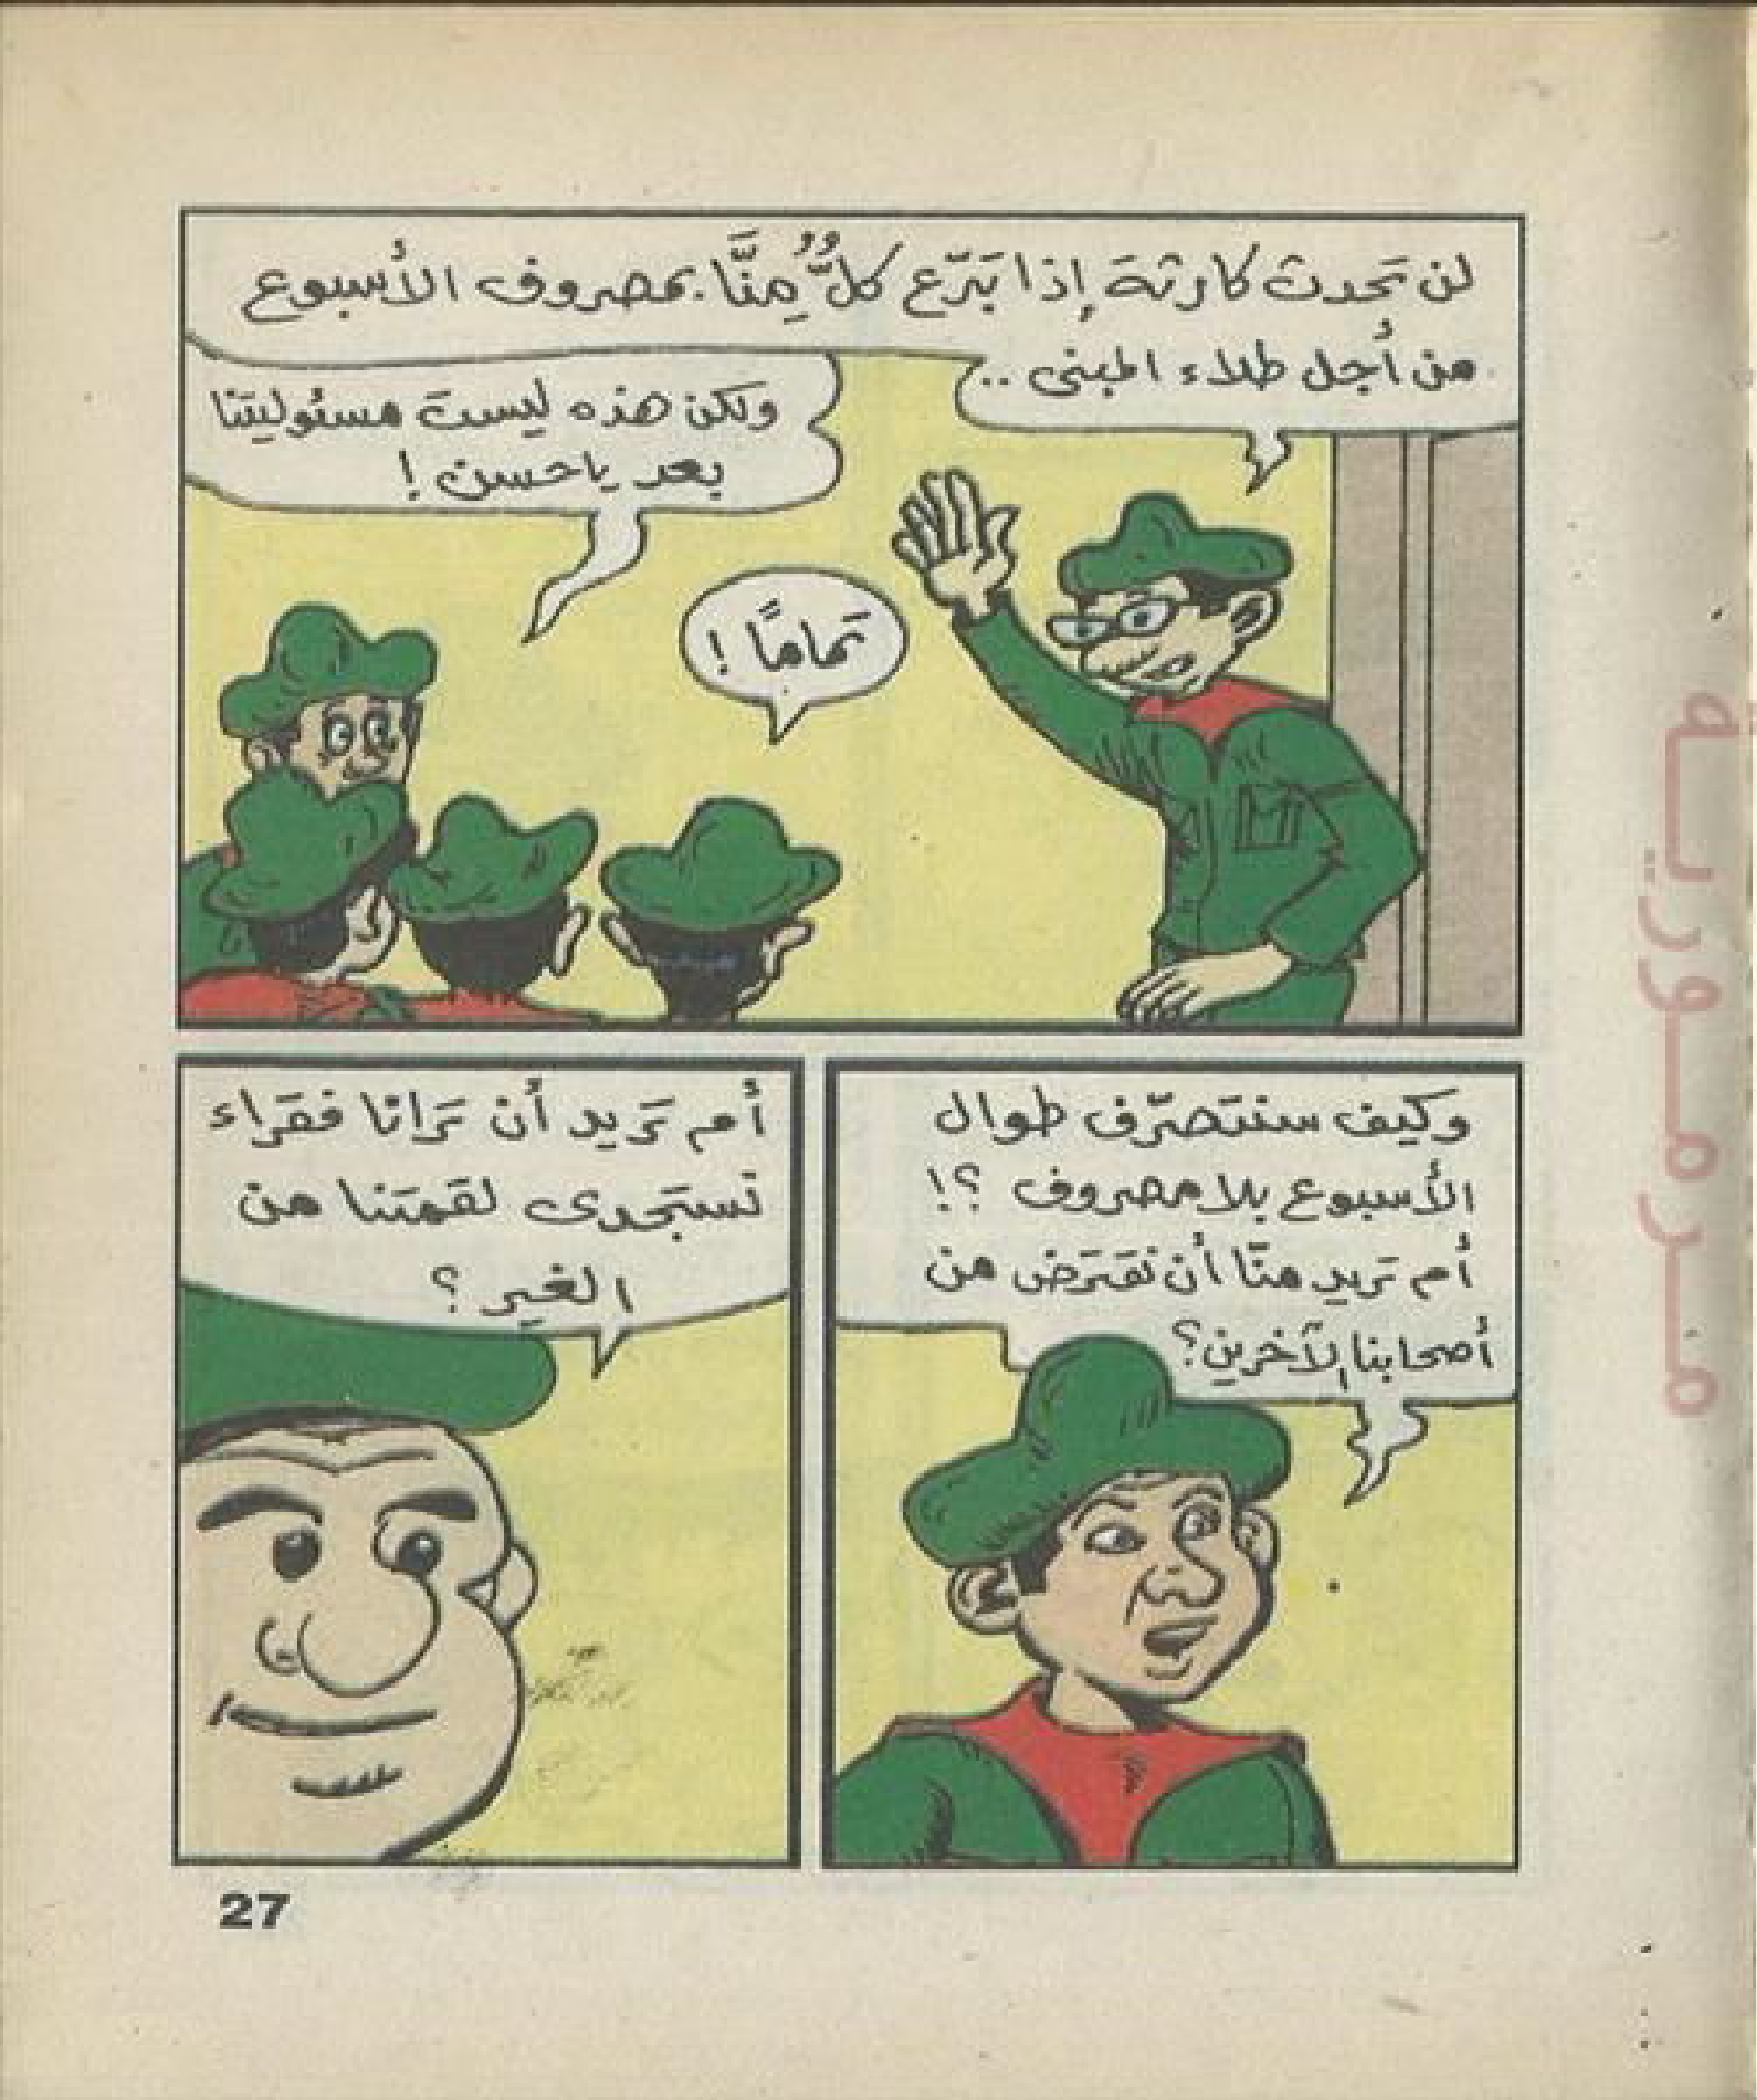 لن تحدث كارثة إذا تبرّع كلٌّ مِنَّا بمصروف الأسبوع
من أجل طلاء المبنى ..
ولكن هذه ليست مسئوليتنا
بعد ياحسن !
تمامًا !
وكيف سنتصرّف طوال
الأسبوع بلا مصروف ؟!
أم تريد منّا أن نقترض من
أصحابنا الآخرين؟
أم تريد أن ترانا فقراء
نستجدى لقمتنا من
الغير ؟
27